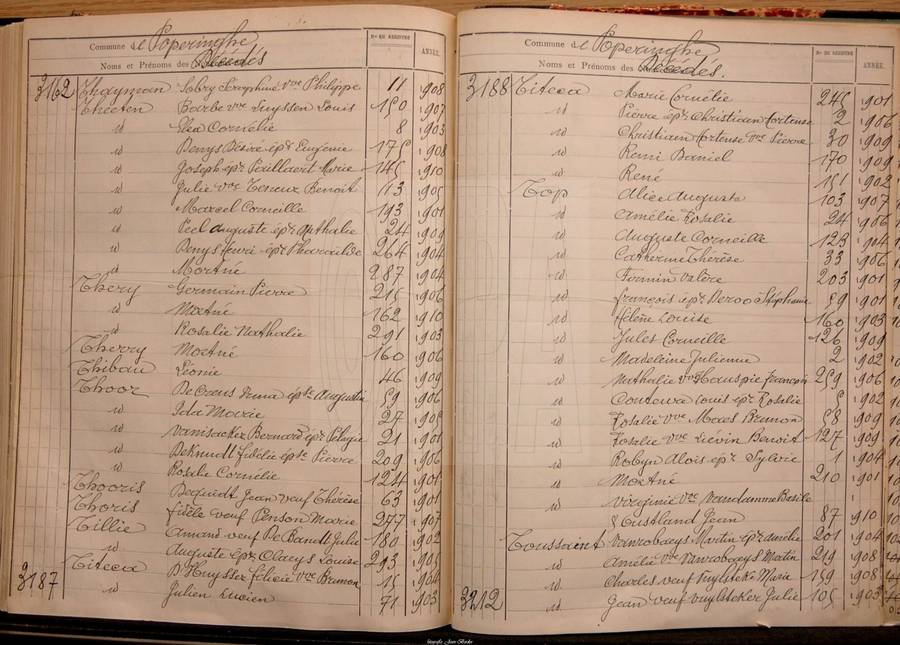 Commune de Poperinghe
Noms et Prénoms des Décédés
No DU REGISTRE
ANNÉE
3162 Thayman Sobry Seraphine vve Philippe 11 1908
Theeten Barbe vve Louis 150 1907
id Cornélie 8 1903
id Denys Désiré épx Eugénie 1908
id Joseph épx Marie 145 1910
id Julie vve Benoit 13 1905
id Marcel Corneille 193 1901
id Peel Auguste épx 24 1909
id Denys Henri épx Pharailde 264 1904
id Mortné 287 1904
Thery Germain Pierre 215 1906
id Mortné 162 1910
id Rosalie Nathalie 291 1903
Therry Mortné 160 1906
Thibau Léonie 46 1909
Thoor Augustin 59 1906
id Ida Marie 27 1905
id Bernard épx 21 1901
id Fidélie Pierre 209 1906
id Rosalie Cornélie 124 1901
Thooris Jean veuf Thérèse 63 1901
Thoris veuf Penson Marie 277 1907
Tillie Amand veuf Julie 180 1902
id Auguste épx Claeys Louise 293 1905
Titeca Félicie vve 15 1904
3187 id Julien Lucien 71 1903
Commune de Poperinghe
Noms et Prénoms des Décédés.
No DU REGISTRE
ANNÉE
3188 Titeca Marie Cornélie 245 1901
id Pierre épx Christiaen Hortense 2 1906
id Christiaen Hortense vve Pierre 30 1909
id Remi Daniel 170 1909
id René 151 1902
Top Alice Augusta 103 1907
id Amélie Rosalie 24 1906
id Auguste Corneille 123 1904
id Catherine Thérèse 33 1906
id Firmin Valère 203 1901
id François épx Deroo Stéphanie 59 1901
id Hélène Louise 160 1903
id Jules Corneille 126 1909
id Madeleine Julienne 2 1902
id Nathalie vve Hauspie François 259 1906
id Louis épx Rosalie 5 1902
id Rosalie vve Maes 58 1909
id Rosalie vve Liévin Benoit 127 1909
id Robyn Alois épx Sylvie 1 1904
id Mortné 210 1901
id Virginie vve Vandamme Basile
& Oustland Jean 87 1910
Toussaint Vanrobaeys Martin épx Amélie 201 1904
id Amélie vve Vanrobaeys Martin 219 1908
id Charles veuf Marie 159 1908
3212 id Jean veuf Julie 105 1903